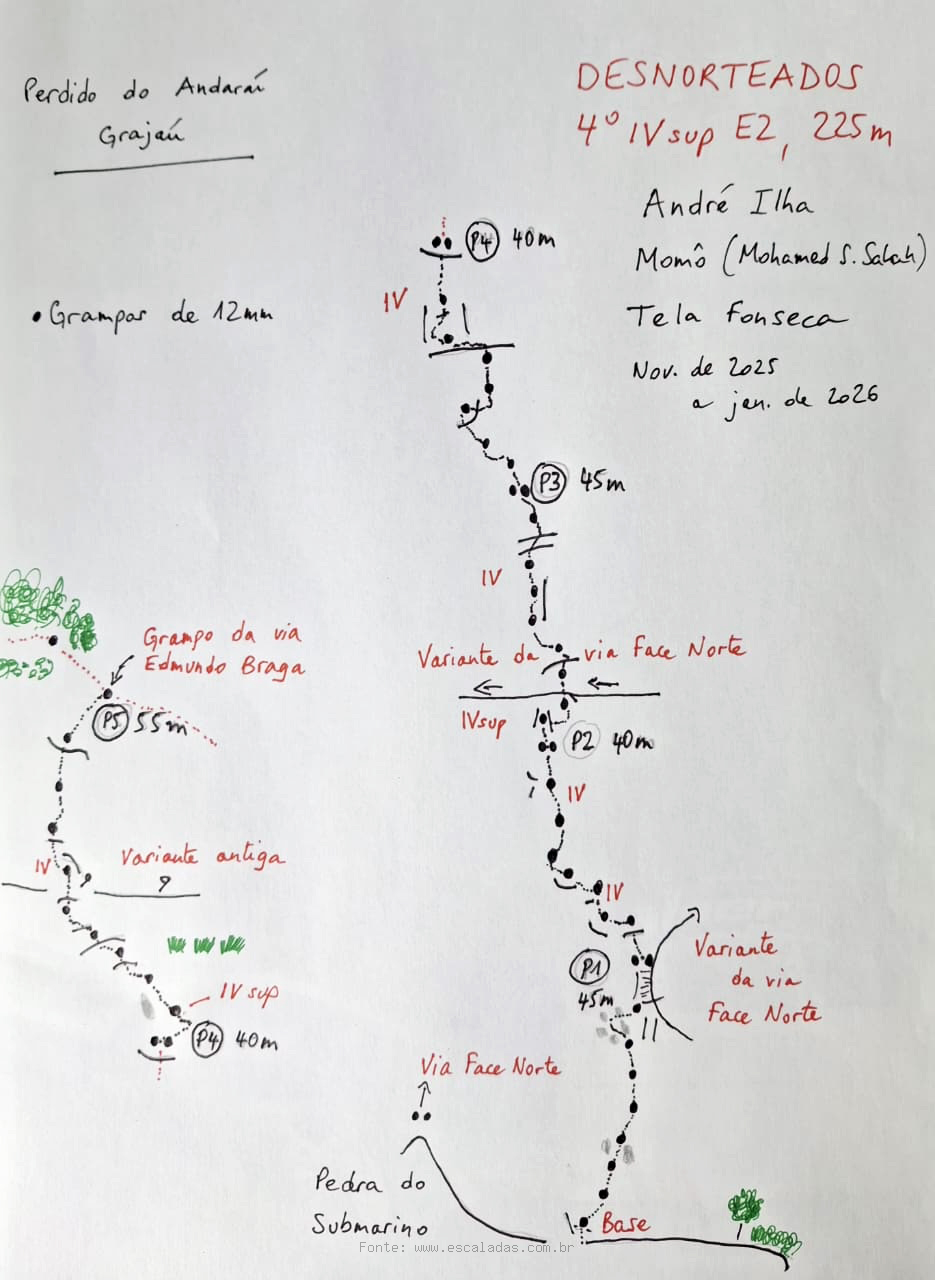 Perdido do Andaraí
Grajaú
DESNORTEADOS
4º IVsup E2, 225m
André Ilha
Momô (Mohamed S. Salah)
Tela Fonseca
Nov. de 2025
a jan. de 2026
• Grampos de 12mm
P4 40m
IV
P3 45m
IV
Variante da via Face Norte
IVsup
P2 40m
IV
IV
P1
45m
Variante
da via
Face Norte
Via Face Norte
Pedra do
Submarino
Base
Grampo da via
Edmundo Braga
P5 55m
IV
Variante antiga
?
IV sup
P4 40m
Fonte: www.escaladas.com.br